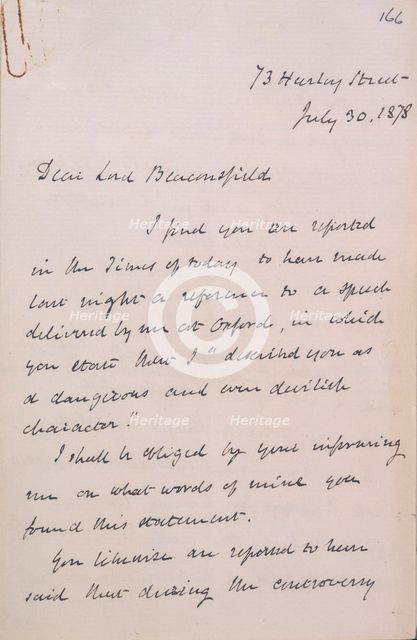 166
73 Harley Street
July 30. 1878
Dear Lord Beaconsfield
I find you are reported
in the Times of today to have made
last night a reference to a speech
delivered by me at Oxford, in which
you state that I "described you as
a dangerous and even devilish
character"
I shall be obliged by your informing
me on what words of mine you
found this statement.
You likewise are reported to have
said that during the controversy
Heritage Heritage
Heritage Heritage Heritage
Heritage Heritage